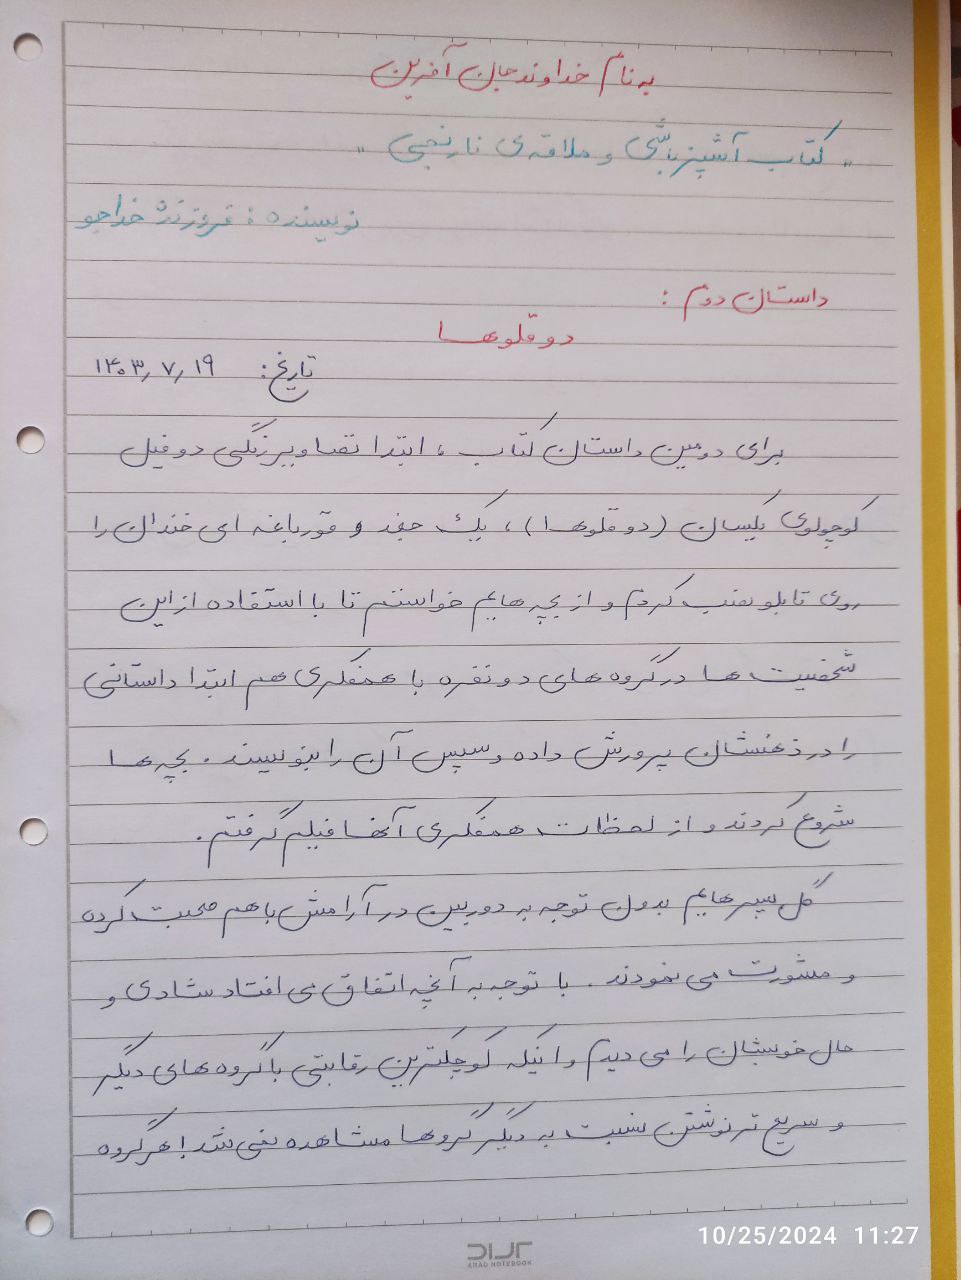 به نام خداوند جان آفرین
"کتاب آشپزباشی و ملاقه‌ی نارنجی"
نویسنده : فروزنده خداجو
داستان دوم :
دوقلوها
تاریخ: ۱۴۰۳٫۷٫۱۹
برای دومین داستان کتاب، ابتدا تصاویر رنگی دو فیل
کوچولوی یکسان (دوقلوها)، یک جغد و قورباغه ای خندان را
روی تابلو نصب کردم و از بچه هایم خواستم تا با استفاده از این
شخصیت ها در گروه های دو نفره با همفکری هم ابتدا داستانی
را در ذهنشان پرورش داده و سپس آن را بنویسند. بچه ها
شروع کردند و از لحظات همفکری آنها فیلم گرفتم.
گل پسرهایم بدون توجه به دوربین در آرامش باهم صحبت کرده
و مشورت می نمودند. با توجه به آنچه اتفاق می افتاد شادی و
حال خوبشان را می دیدم و اینکه کوچکترین رقابتی با گروه های دیگر
و سریع تر نوشتن نسبت به دیگر گروها مشاهده نمی شد! هر گروه
ARAD NOTEBOOK
10/25/2024 11:27